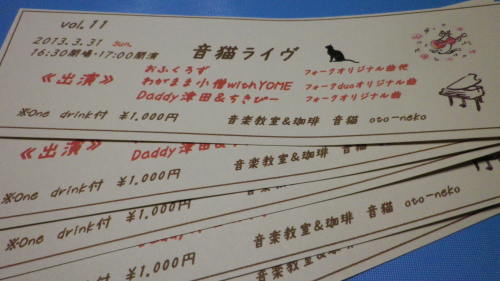 vol.11
2013.3.31 Sun.
16:30開場・17:00開演
音猫ライヴ
≪出演≫
おふくろず フォークオリジナル曲他
わがまま小僧withYOME フォークduoオリジナル曲
Daddy津田&ちきびー フォークオリジナル曲
※One drink付 ¥1,000円 音楽教室&珈琲 音猫 oto-neko
≪出演≫ Daddy津田&
※One drink付 ¥1,000円 音楽教室&珈琲 音猫 oto-neko
Daddy
※One drink付 ¥1,000円 音楽教室&珈琲 音猫 oto-neko
※One drink付 ¥1,000円 音楽教室&珈琲 音猫
音楽教室&珈琲